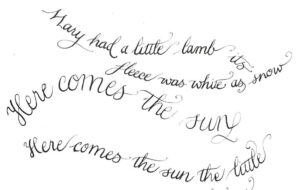 Mary had a little lamb its
fleece was white as snow
Here comes the sun
Here comes the sun the little